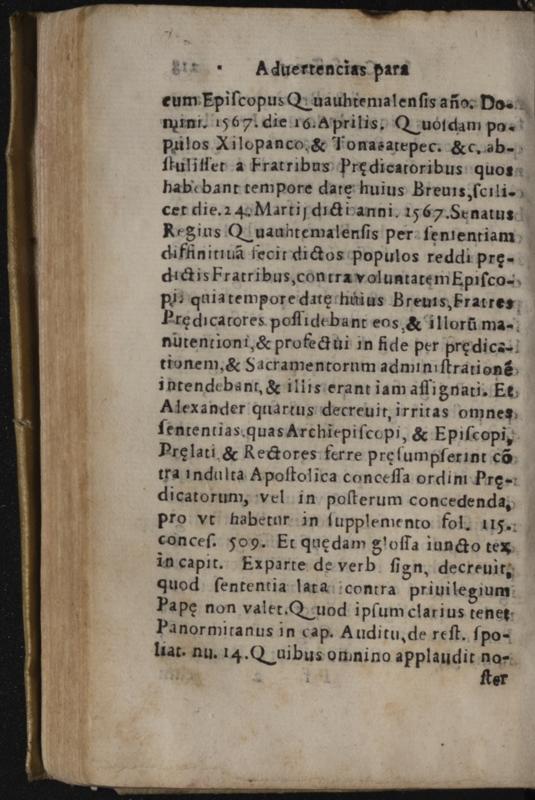 Aduertencias para
cum Epiſcopus Quauhtemalenſis año. Do-
mini. 1567. die 16. Aprilis. Quoſdam po-
pulos Xilopanco, & Tonaꝛatepec. &c. ab-
ſtuliſſet a Fratribus Prędicatoribus quos
habebant tempore datę huius Breuis, ſcili-
cet die. 24. Martij dicti anni. 1567. Senatus
Regius Quauhtemalenſis per ſententiam
diffinitiuā fecit dictos populos reddi prę-
dictis Fratribus, contra voluntatem Epiſco-
pi. quia tempore datę huius Breuis, Fratres
Prędicatores poſſidebant eos, & illorū ma-
nutentioni, & profectui in fide per prędica-
tionem, & Sacramentorum adminiſtrationē
intendebant, & illis erant iam aſſignati. Et
Alexander quartus decreuit, irritas omnes
ſententias, quas Archiepiſcopi, & Epiſcopi,
Pręlati & Rectores ferre pręſumpſerint cō
tra indulta Apoſtolica conceſſa ordini Prę-
dicatorum, vel in poſterum concedenda,
pro vt habetur in ſupplemento fol. 115.
conceſ. 509. Et quędam gloſſa iuncto tex
in capit. Exparte de verb ſign, decreuit,
quod ſententia lata contra priuilegium
Papę non valet. Quod ipſum clarius tenet
Panormitanus in cap. Auditu, de reſt. ſpo-
liat. nu. 14. Quibus omnino applaudit no-
ſter